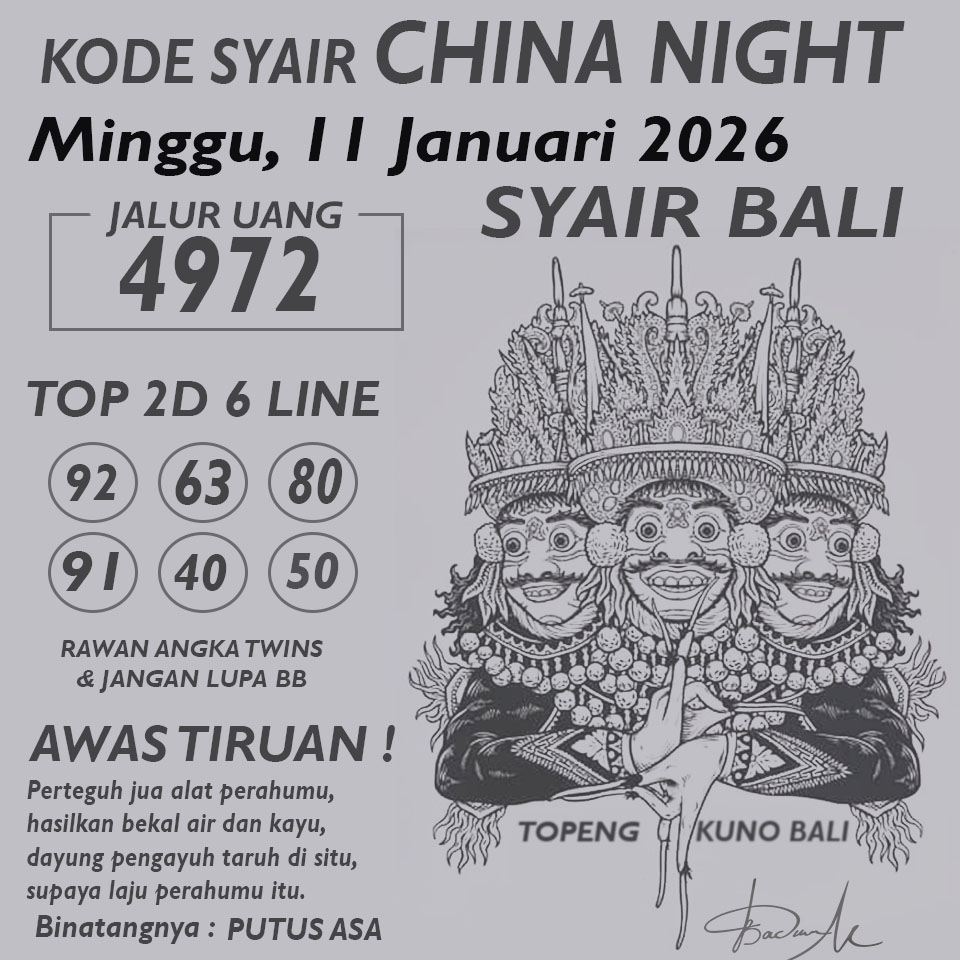 KODE SYAIR CHINA NIGHT
Minggu, 11 Januari 2026
SYAIR BALI
JALUR UANG
4972
TOP 2D 6 LINE
92 63 80
91 40 50
RAWAN ANGKA TWINS
& JANGAN LUPA BB
AWAS TIRUAN !
Perteguh jua alat perahumu,
hasilkan bekal air dan kayu,
dayung pengayuh taruh di situ,
supaya laju perahumu itu.
Binatangnya : PUTUS ASA
TOPENG KUNO BALI